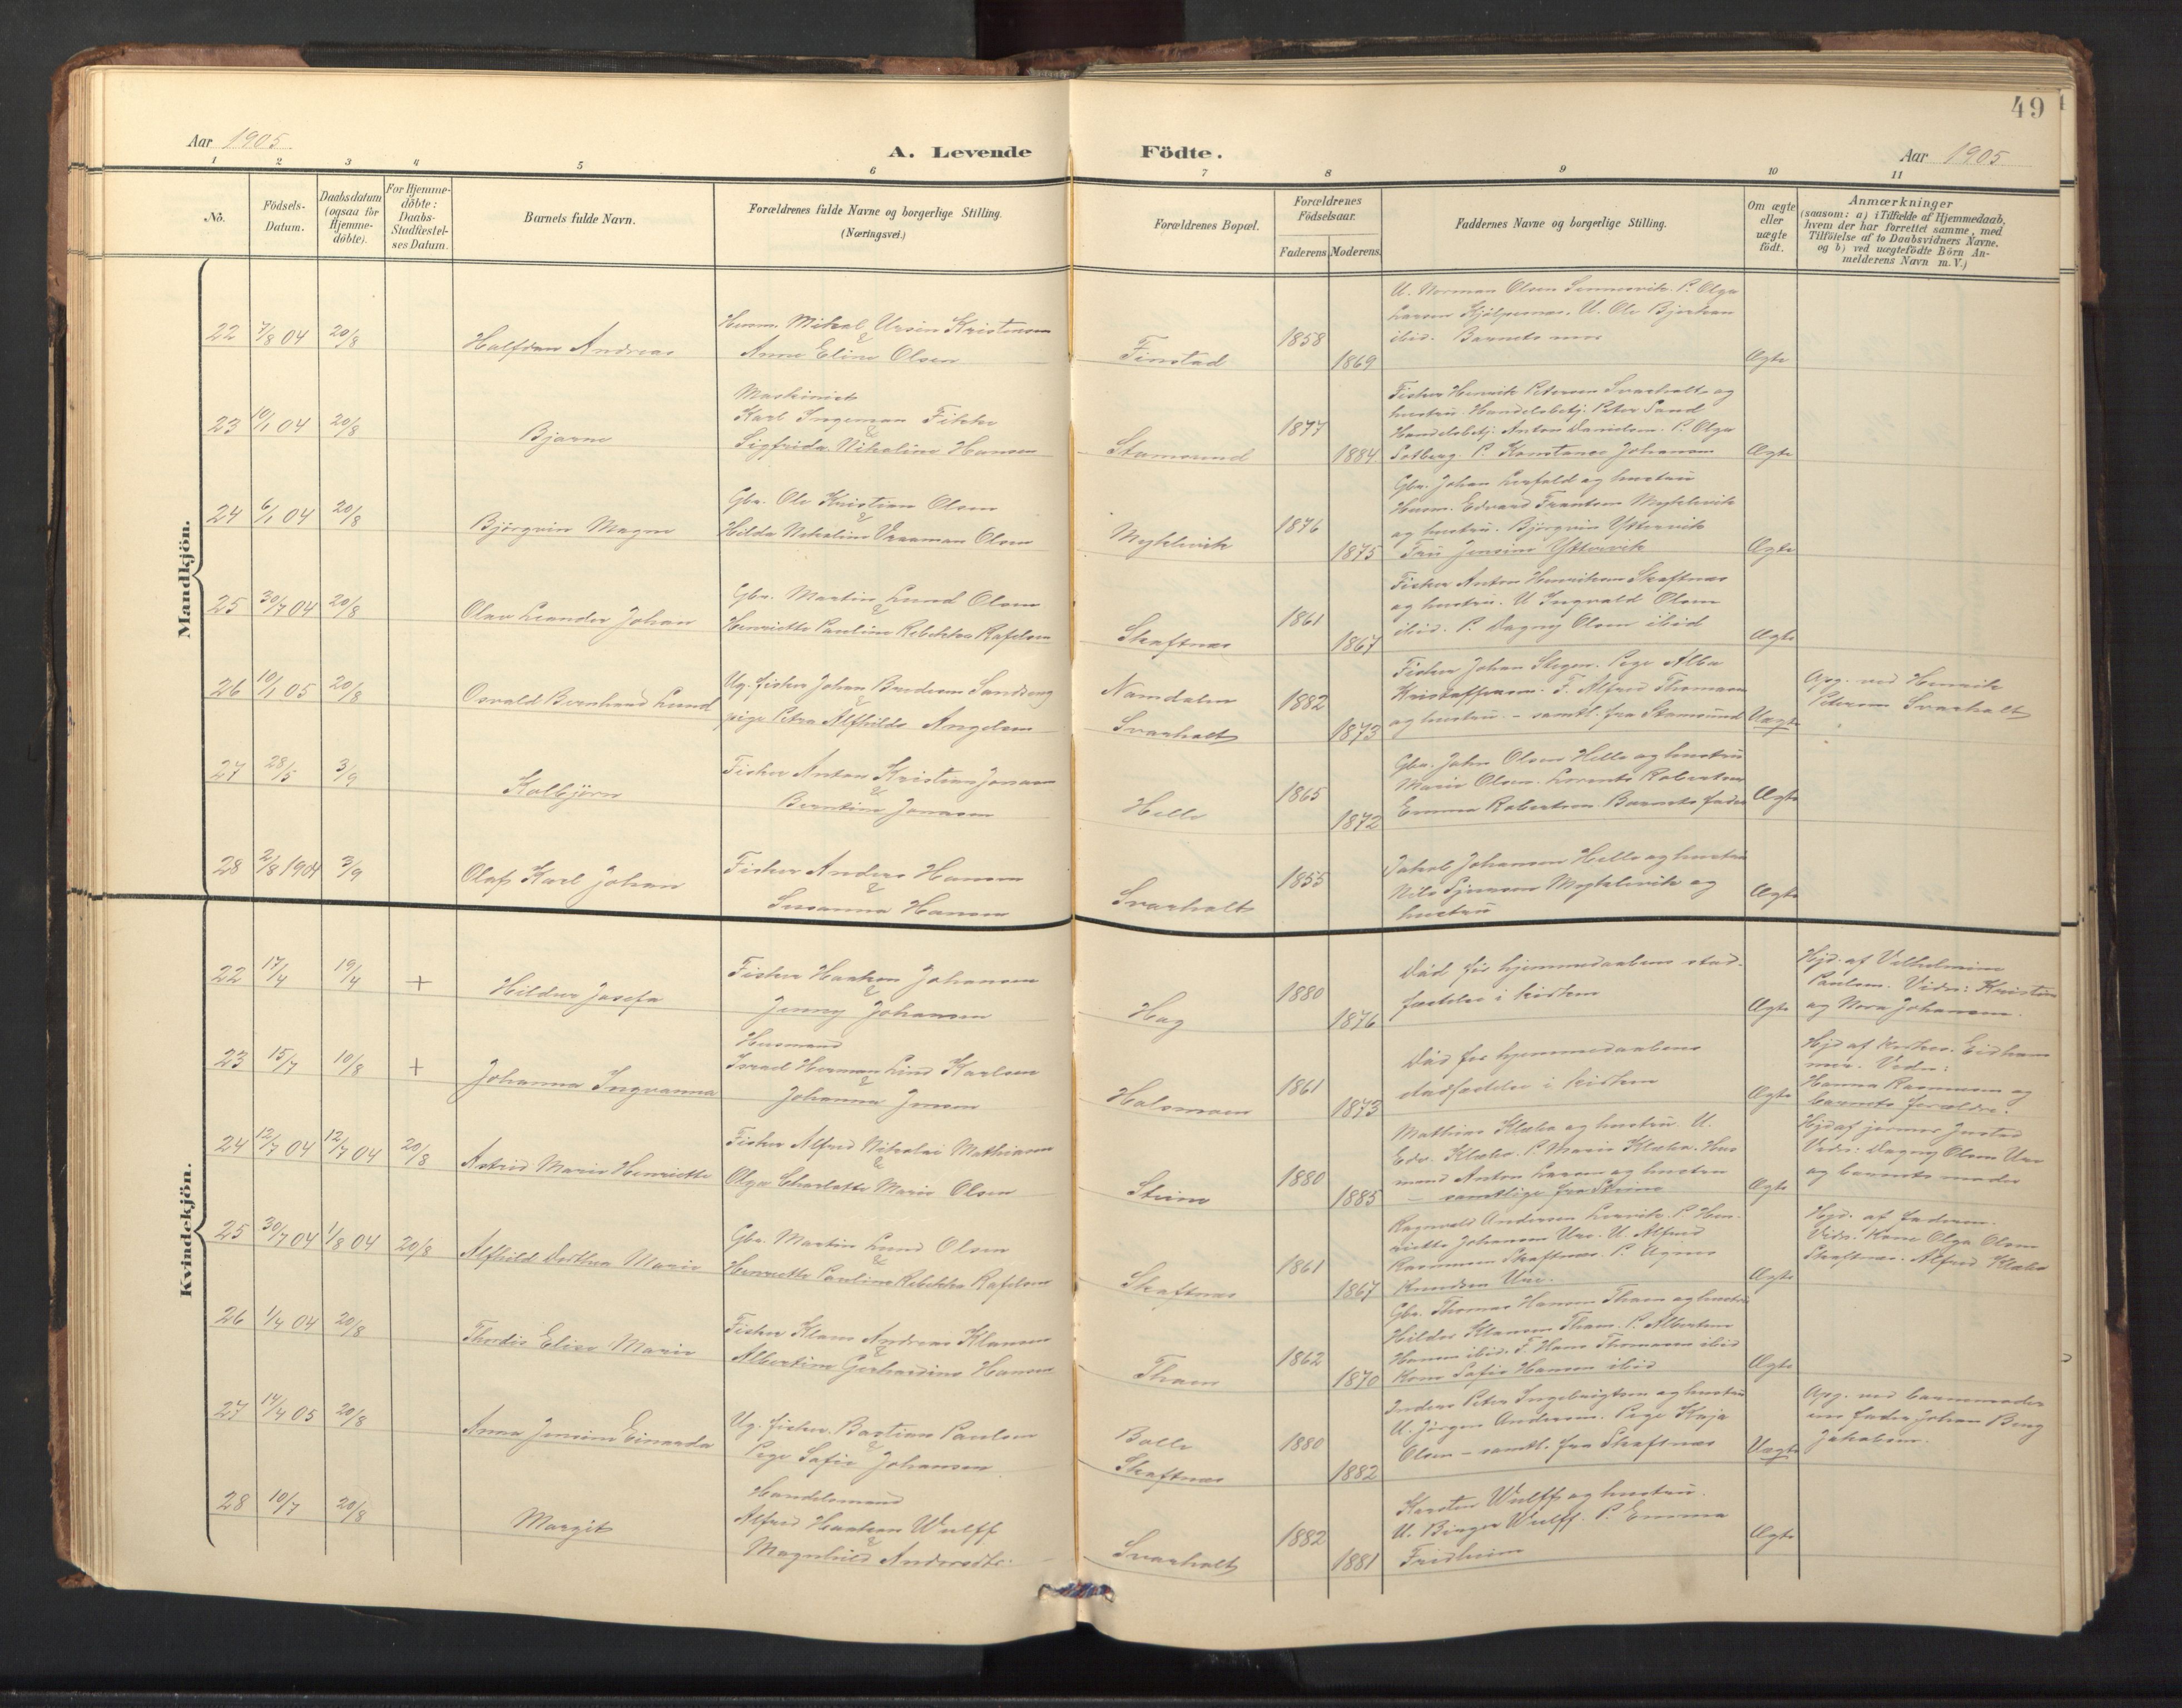 49
Aar 1905.
A. Levende Födte.
Aar 1905
1 2 3 4 5 6 7 8 9 10 11
No.
Födsels-
Datum.
Daabsdatum
(ogsaa for
Hjemme-
döbte).
For Hjemme-
döbte:
Daabs-
Stadfæstel-
ses Datum.
Barnets fulde Navn.
Forældrenes fulde Navne og borgerlige Stilling.
(Næringsvei.)
Forældrenes Bopæl.
Forældrenes
Födselsaar.
Faderens Moderens.
Faddernes Navne og borgerlige Stilling.
Om ægte
eller
uægte
födt.
Anmærkninger
(saasom: a) i Tilfælde af Hjemmedaab,
hvem der har forrettet samme, med
Tilföielse af to Daabsvidners Navne,
og b) ved uægtefödte Börn An-
melderens Navn m.V.)
Mandkjön.
22 7/8 04 20/8
Halfdan Andreas
Husm. Mikal Ursin Kristensen
&
Anne Eline Olsen
Finstad
1858
1869
U. Norman Olsen Sennesvik. P. Olga
Larsen Hjölpesnes. U. Ole Bjerkan
ibid. Barnets mor
Ægte
23 10/1 04 20/8
Bjarne
Maskinist
Karl Ingeman Fikke
&
Sigfrida Nikoline Hansen
Stamsund
1877
1884
Fisker Henrik Petersen Svarholt og
hustru. Handelsbetj. Peter Sand
Handelsbetj. Anton Danielsen. P. Olga
Solberg. P. Konstance Johansen
Ægte
24 6/1 04 20/8
Björgvin Magne
Gbr. Ole Kristian Olsen
&
Hilda Nikoline Vraaman Olsen
Myklevik
1876
1875
Gbr. Johan Lerfald og hustru
Husm. Edvard Frantsen Myklevik
og hustru. Björgvin Yttervik
Fru Jensine Yttervik
Ægte
25 30/7 04 20/8
Olav Leander Johan
Gbr. Martin Lund Olsen
&
Henriette Pauline Rebekka Rafelsen
Skaftnæs
1861
1867
Fisker Anton Henriksen Skaftnæs
og hustru. U Ingvald Olsen
ibid. P. Dagny Olsen ibid
Ægte
26 10/1 05 20/8
Osvald Bernhard Lund
Ug. fisker Johan Berdesen Sandseng
&
pige Petra Alfhilde Angelsen
Namdalen
Svarholt
1882
1873
Fisker Johan Stegen. Pige Alba
Kristoffersen. F. Alfred Thomasen
og hustru - samtl. fra Stamsund
Uægte
Opg. ved Henrik
Petersen Svarholt
27 28/5 3/9
Kolbjörn
Fisker Anton Kristian Jonasen
&
Berntine Jonasen
Helle
1865
1872
Gbr. John Olsen Helle og hustru
Marie Olsen. Lorents Robertsen
Emma Robertsen. Barnets fader
Ægte
28 2/8 1904 3/9
Olaf Karl Johan
Fisker Anders Hansen
&
Susanna Hansen
Svarholt
1855
Jakob Johansen Helle og hustru
Nils Myklevik og
hustru
Ægte
Kvindekjön.
22 17/4 19/4 +
Hildur Josefa
Fisker Haakon Johansen
&
Jenny Johansen
Hag
1880
1876
Död för hjemmedaabens stad-
fæstelse i kirken
Ægte
Hjd. af Vilhelmine
Paulsen. Vidn: Kristine
og Nora Johansen.
23 15/7 10/8 +
Johanna Ingvarna
Husmand
Israel Herman Lind Karlsen
&
Johanna Jensen
Holsmoen
1861
1873
Död før hjemmedaabens
stadfæstelse i kirken
Ægte
Hjd af
Vidn:
Hanna Rasmussen og
barnets forældre.
24 12/7 04 12/7 04 20/8
Astrid Marie Henriette
Fisker Alfred Nikolai Mathisen
&
Olga Charlotte Marie Olsen
Steine
1880
1885
Mathias Klæbo og hustru. U.
Edv. Klæbo. P. Marie Klæbo. Hus
mand Anton Larsen og hustru
- samtlige fra Steine
Ægte
Hjd af jormor Justad
Vidn: Dagny Olsen Ure
og barnets moder
25 30/7 04 1/8 04 20/8
Alfhild Dorthea Marie
Gbr. Martin Lund Olsen
&
Henriette Pauline Rebekka Rafelsen
Skaftnæs
1861
1867
Ragnvald Andersen Lervik. P Hen-
riette Johansen Ure. U. Alfred
Rasmussen Skaftnæs. P. Agnes
Knudsen Ure.
Ægte
Hjd. af faderen.
Vidn. Kone Olga Olsen
Skaftnæs. Alfred Klæbo
26 1/4 04 20/8
Thordis Elise Marie
Fisker Klaus Andreas Klausen
&
Albertine Gerhardine Hansen
Tham
1862
1870
Gbr. Thomas Hansen Tham og hustru
Hilda Klausen Tham. P. Albertine
Hansen ibid. F. Hans Thomasen ibid
Kone Sofie Hansen ibid
Ægte
27 14/4 05 20/8
Anna Jensine Einarda
Ug. fisker. Bastian Paulsen
&
Pige Sofie Johansen
Balle
Skaftnæs
1880
1882
Inders Peter Ingebrigtsen og hustru
U. Jörgen Andersen. Pige Kaja
Olsen - samtl. fra Skaftnæs
Uægte
Opg. ved barnemoder
ens fader Johan Berg
Jakobsen.
28 10/7 20/8
Margit
Handelsmand
Alfred Haakon Wulff
&
Magnhild Andersdtr.
Svarholt
1882
1881
Karsten Wulff og hustru.
U. Birger Wulff. P. Emma
Fridheim
Ægte